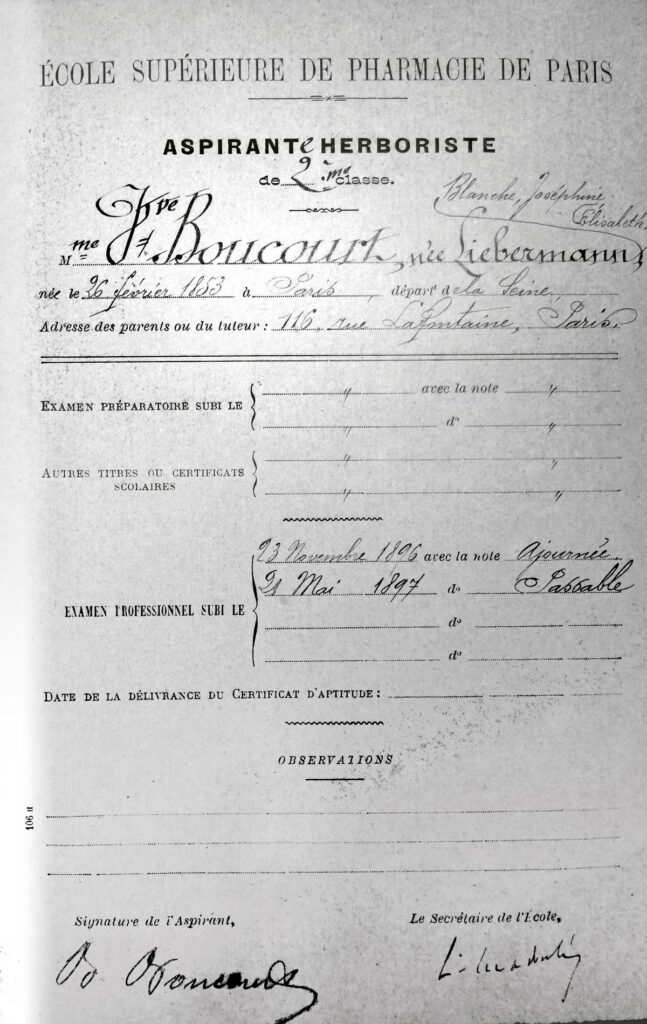 ÉCOLE SUPÉRIEURE DE PHARMACIE DE PARIS
ASPIRANTe HERBORISTE
de 2me classe.
Blanche, Joséphine,
Élisabeth,
Mme Vve Boucourt, née Liebermann,
née le 26 février 1853 à Paris, départt de la Seine,
Adresse des parents ou du tuteur : 116, rue Lafontaine, Paris.
EXAMEN PRÉPARATOIRE SUBI LE { " avec la note "
" do "
AUTRES TITRES OU CERTIFICATS SCOLAIRES { " "
" "
EXAMEN PROFESSIONNEL SUBI LE { 23 Novembre 1896 avec la note Ajournée.
21 Mai 1897 do Passable
do
do
DATE DE LA DÉLIVRANCE DU CERTIFICAT D'APTITUDE :
OBSERVATIONS
106 II
Signature de l'Aspirant, Le Secrétaire de l'École,
Boucourt